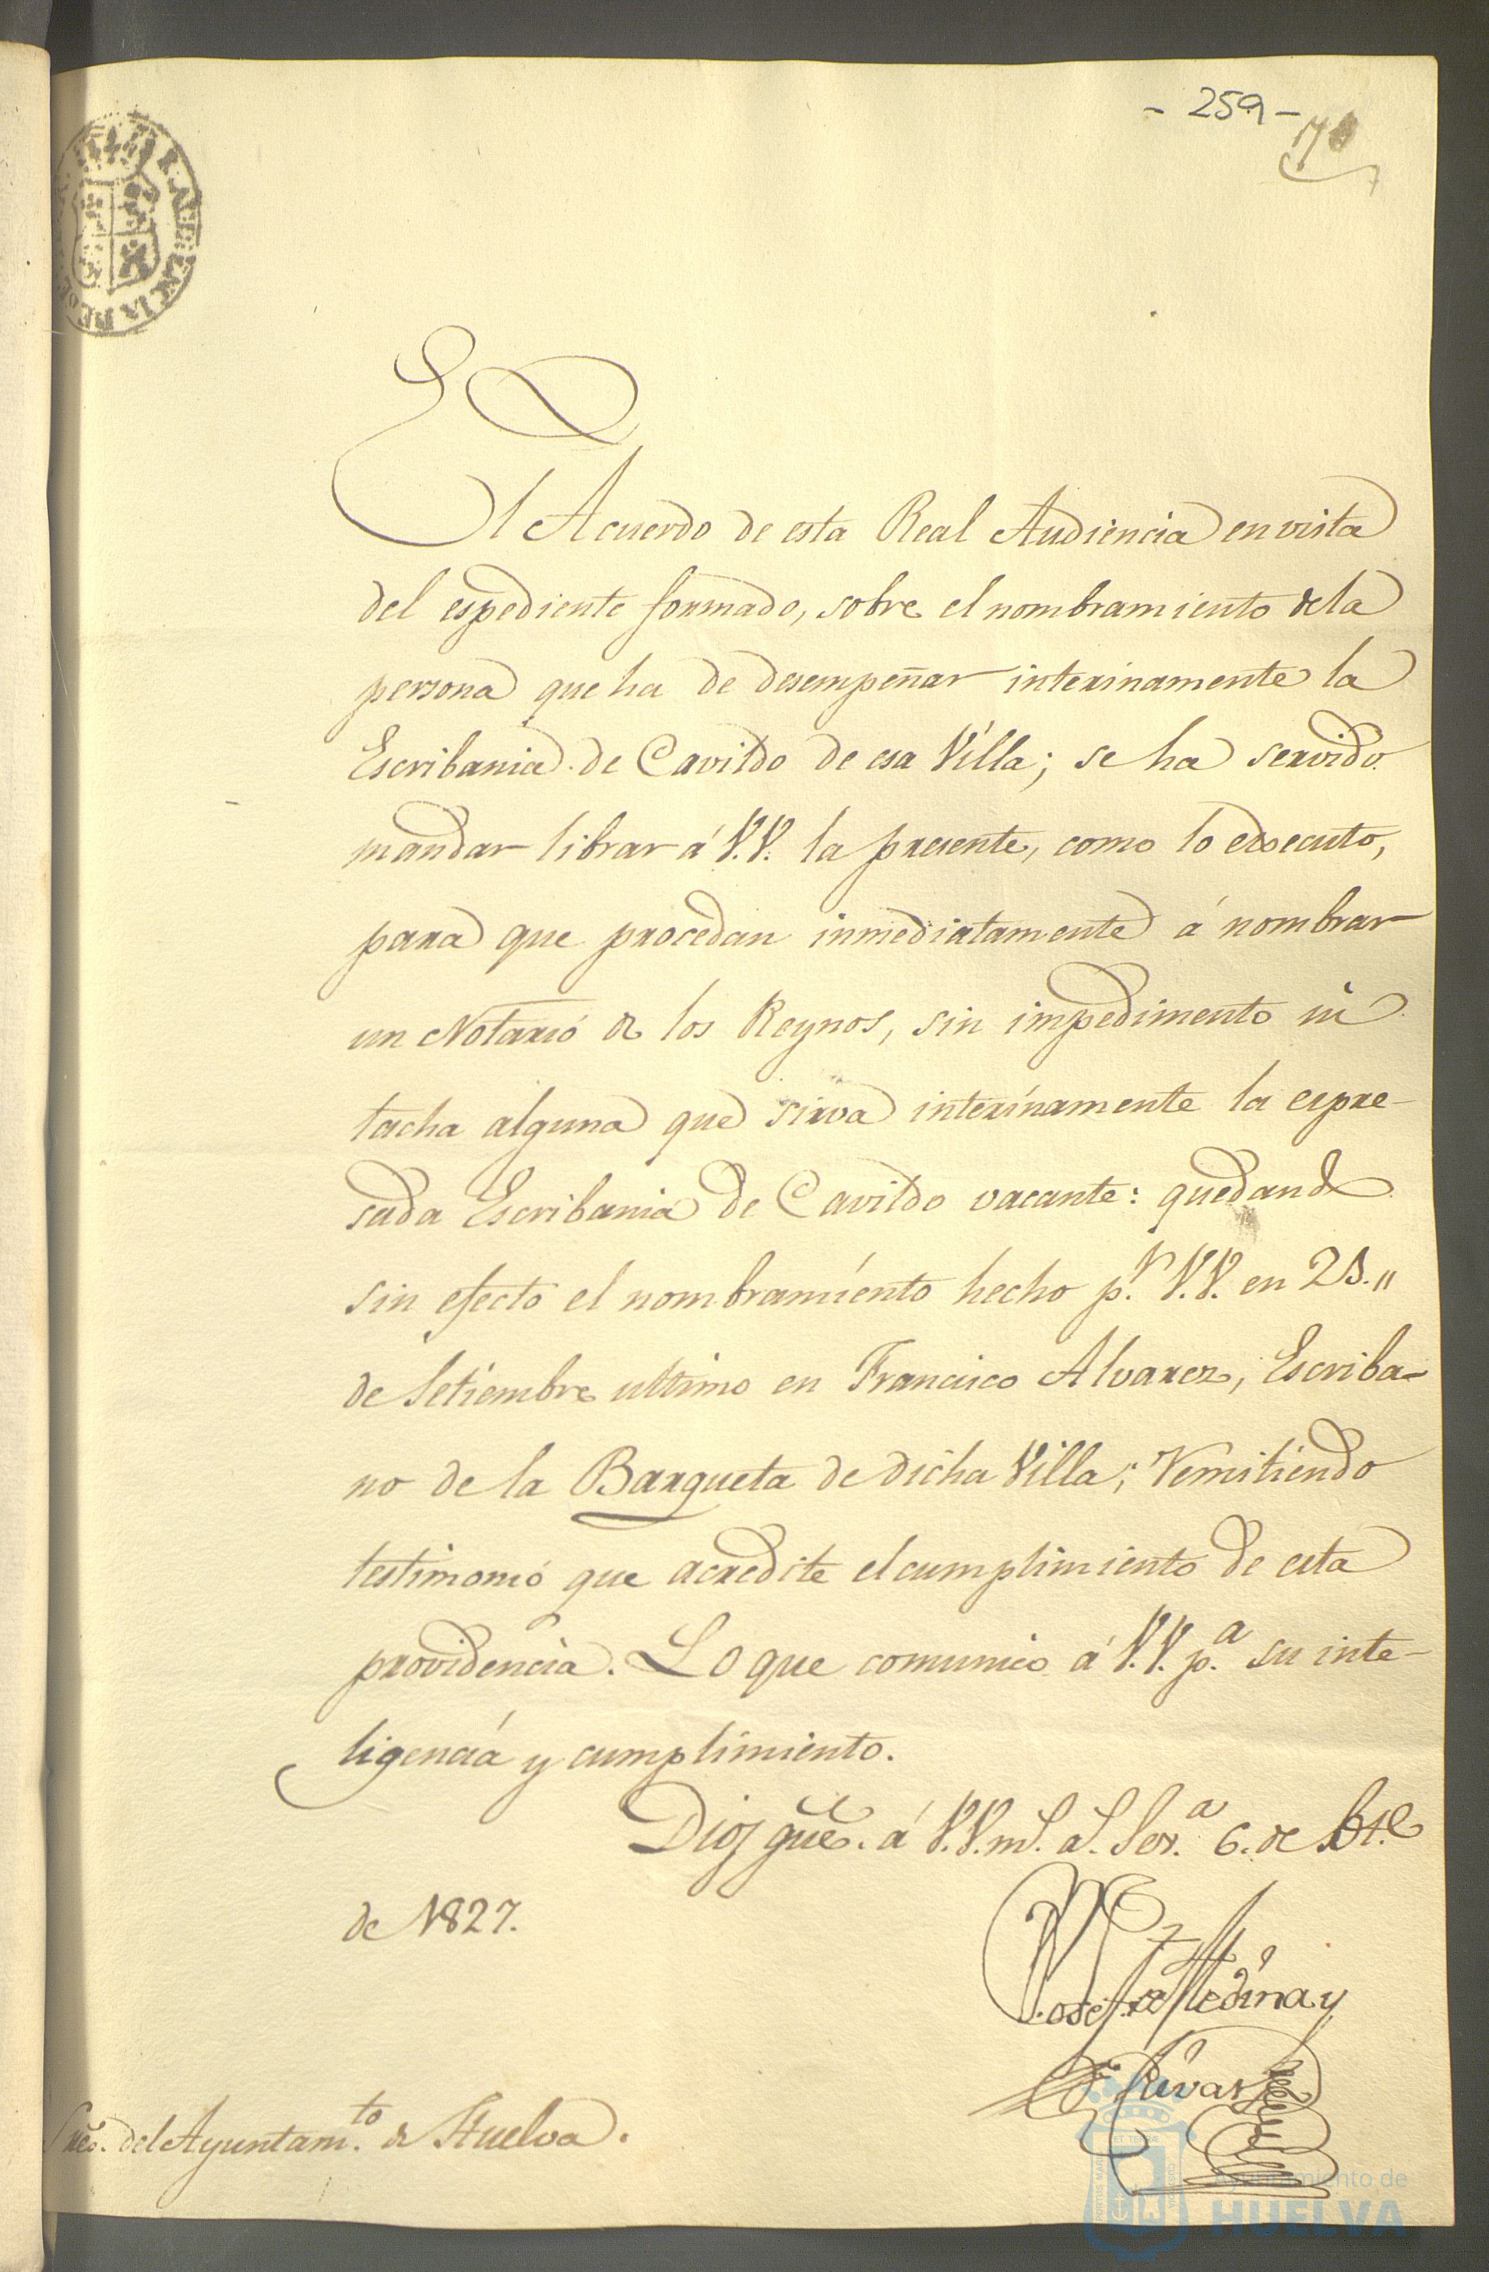 - 259 -
El Acuerdo de esta Real Audiencia en vista
del espediente formado, sobre el nombramiento de la
persona que ha de desempeñar interinamente la
Escribania de Cavildo de esa Villa; se ha servido
mandar librar á V.V. la presente, como lo executo,
para que procedan inmediatamente á nombrar
un Notario de los Reynos, sin impedimento ni
tacha alguna que sirva interinamente la espre-
sada Escribania de Cavildo vacante: quedando
sin efecto el nombramiento hecho p.r V.V. en
de Setiembre ultimo en Francisco Alvarez, Escriba-
no de la Barqueta de dicha Villa; remitiendo
testimonio que acredite el cumplimiento de esta
providencia. Lo que comunico á V.V. p.a su inte-
ligencia y cumplimiento.
Dios gue. á V.V. m.s a.s Sev.a 6. de
de 1827.
Josef de Medina y
Rivas
Sres. del Ayuntam.to de Huelva.
Ayuntamiento de
HUELVA